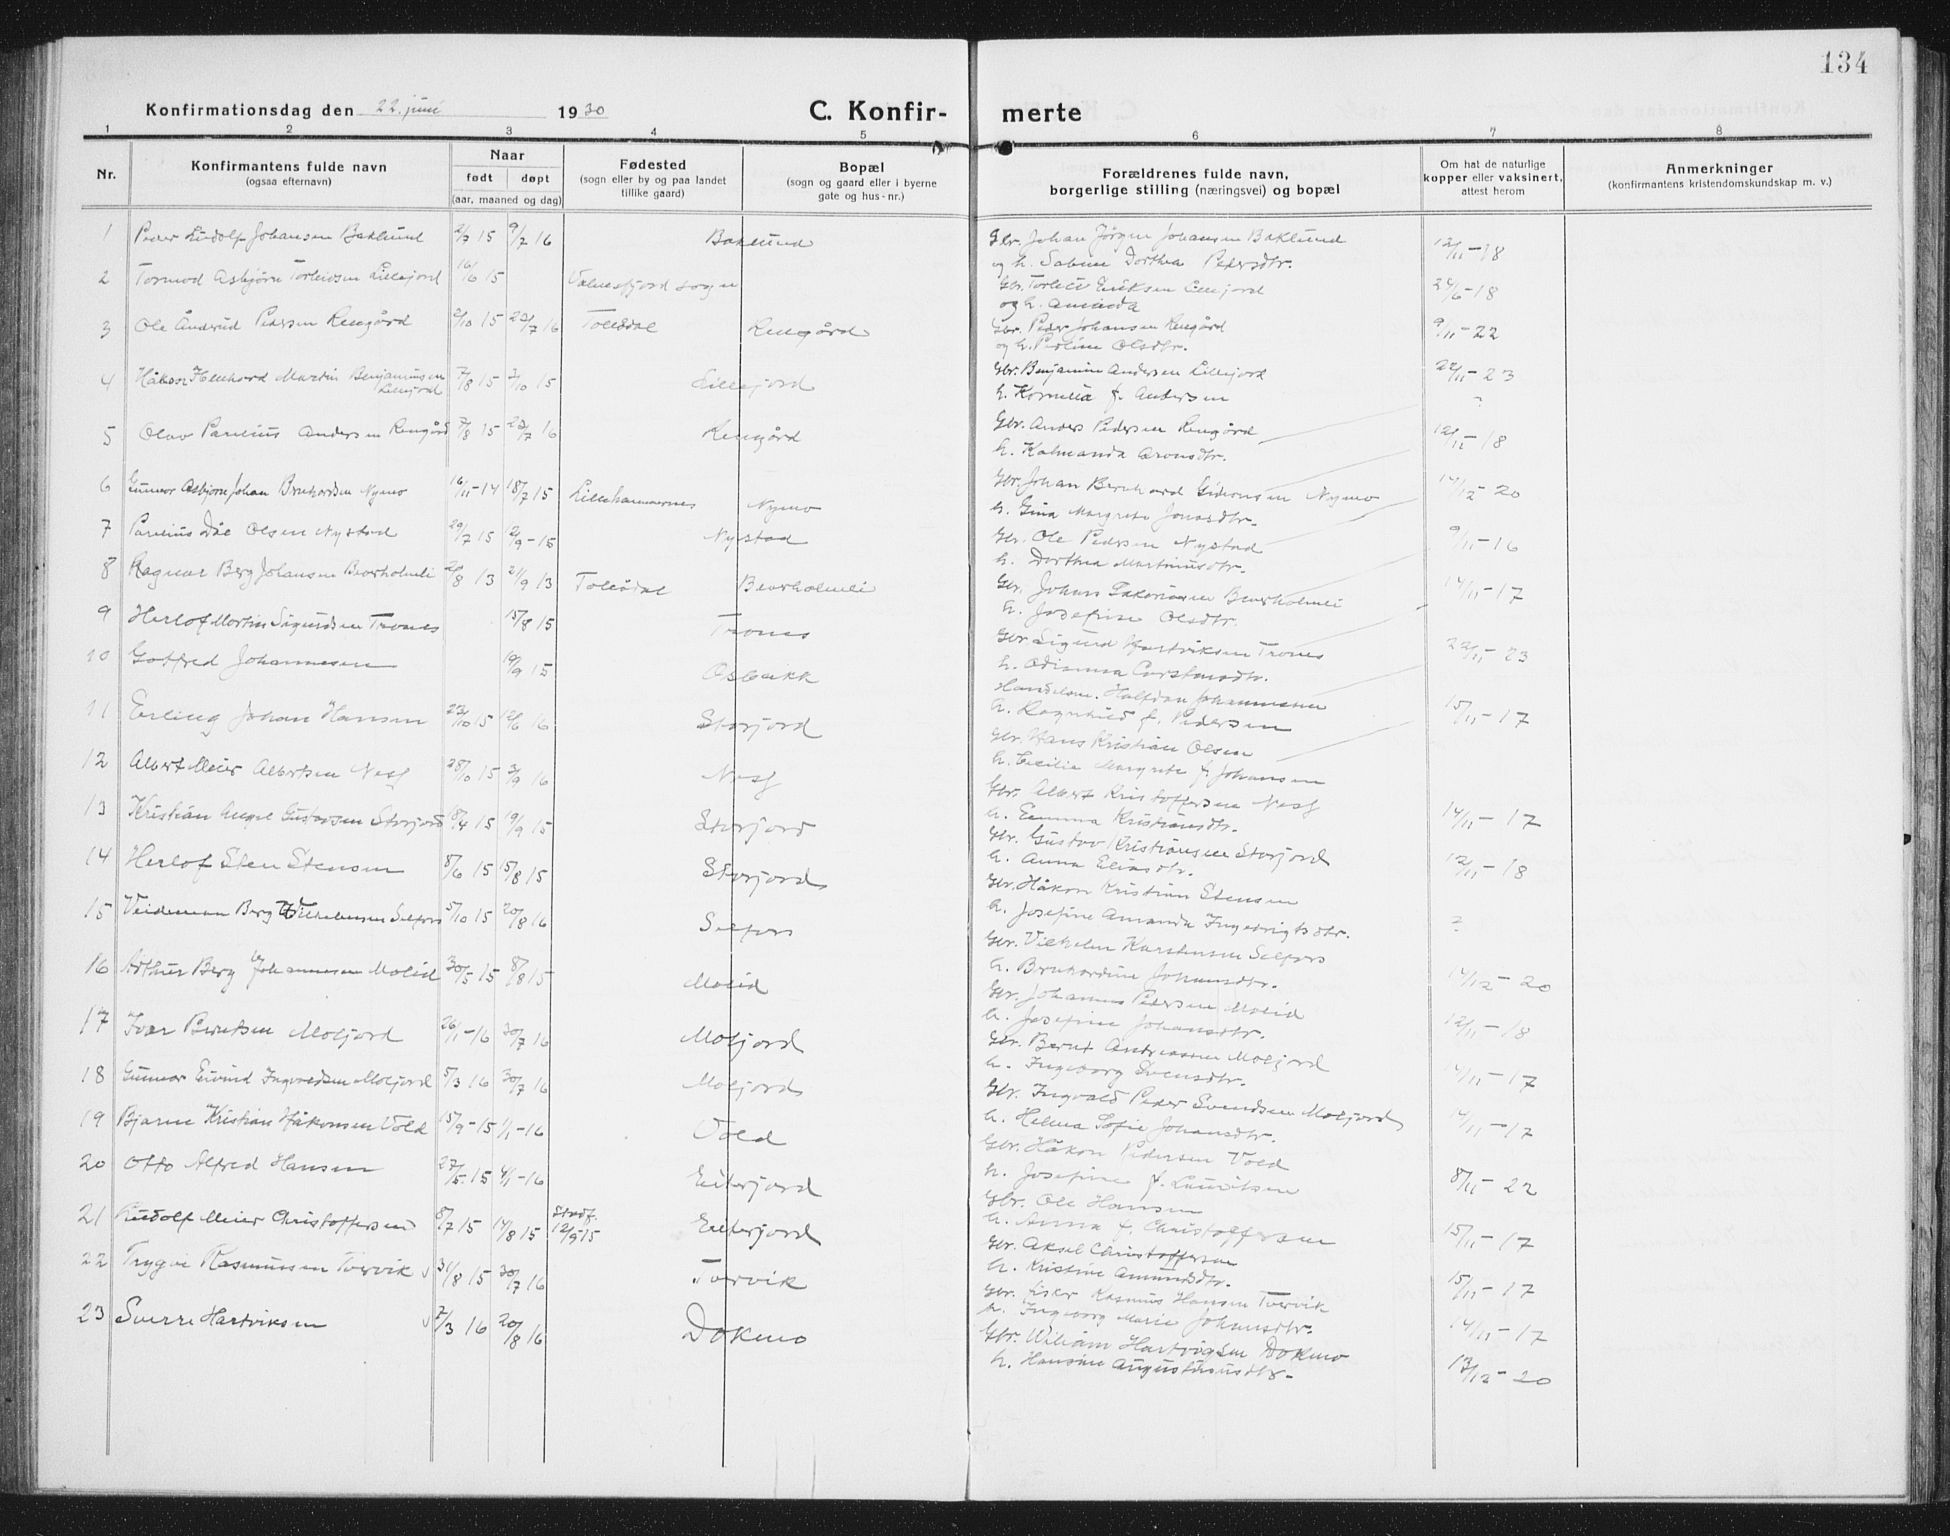 134
Konfirmationsdag den 22. juni 1930 C. Konfir- merte
1 2 3 4 5 6 7 8
Nr. Konfirmantens fulde navn (ogsaa efternavn) Naar født døpt (aar, maaned og dag) Fødested (sogn eller by og paa landet tillike gaard) Bopæl (sogn og gaard eller i byerne gate og hus-nr.) Forældrenes fulde navn, borgerlige stilling (næringsvei) og bopæl Om hat de naturlige kopper eller vaksinert, attest herom Anmerkninger (konfirmantens kristendomskundskap m. v.)
1 Peder Rudolf Johansen Baklund 2/7 15 9/7 16 Baklund Gbr. Johan Jørgen Johansen Baklund 12/11-18
og h. Sabine Dorthea Pedersdtr.
2 Tormod Asbjørn Torleivsen Lillejord 16/6 15 Valnesfjord sogn Gbr. Torleiv Eriksen Lillejord 24/6-18
og h. Aminda
3 Ole Ånderud Pedersen Rengård 2/10 15 23/7 16 Tollådal Rengård Gbr. Peder Johansen Rengård 9/11-22
og h. Pauline Olsdtr.
4 Håkon Martin Benjaminsen Lillejord 7/8 15 3/10 15 Lillejord Gbr. Benjamin Andersen Lillejord 22/11-23
h. Kornelia f. Andersen ?
5 Olav Parelius Andersen Rengård 7/8 15 23/7 16 Rengård Gbr. Anders Pedersen Rengård 12/11-18
h. Kalmanda Aronsdtr.
6 Gunnar Asbjørn Johan Bernhardsen Nymo 16/11-14 18/7 15 Lillehammernes Nymo Gbr. Johan Bernhard Gideonsen Nymo 14/12-20
h. Gina Margrete Jonasdtr.
7 Parelius Dåe Olsen Nystad 29/7 15 12/9-15 Nystad Gbr. Ole Pedersen Nystad 9/11-16
h. Dorthea Martinusdtr.
8 Ragnar Berg Johansen Beverholmli 20/8 13 21/9 13 Tollådal Beverholmli Gbr. Johan Zakariasen Beverholmli 14/11-17
h. Josefine Olsdtr.
9 Herlof Martin Sigurdsen Trones 15/8 15 Trones Gbr. Sigurd Hartviksen Trones 22/11-23
h. Odianna Carstensdtr.
10 Gotfred Johannesen 19/9 15 Osbakk Handelsm. Halfdan Johannesen 15/11-17
h. Ragnhild f. Pedersen
11 Erling Johan Hansen 22/10 15 12/6 16 Storjord Gbr. Hans Kristian Olsen
h. Cecilie Margrete f. Johansen
12 Albert Meier Albertsen Nesf 28/10 15 3/9 16 Nesf Gbr. Albert Kristoffersen Nesf 14/11-17
h. Emma Kristiansdtr.
13 Kristian Angel Gustavsen Storjord 18/4 15 19/9 15 Storjord Gbr. Gustav Kristiansen Storjord 12/11-18
h. Anna Eliasdtr.
14 Herlof Sten Stensen 8/6 15 15/8 15 Storjord Gbr. Håkon Kristian Stensen
h. Josefine Amanda Ingebrigtsdtr. ?
15 Veideman Berg Vilhelmsen Selfors 5/10 15 20/8 16 Selfors Gbr. Vilhelm Karstensen Selfors
h. Bernhardine Johansdtr. 14/12-20
16 Arthur Berg Johannesen Molid 30/5 15 8/8 15 Molid Gbr. Johannes Pedersen Molid
h. Josefine Johansdtr. 12/11-18
17 Ivar Berntsen Moljord 26/11-16 30/7 16 Moljord Gbr. Bernt Andreassen Moljord
h. Ingeborg Svensdtr. 14/11-17
18 Gunnar Eivind Ingvaldsen Moljord 5/3 16 30/7 16 Moljord Gbr. Ingvald Peder Svendsen Moljord
h. Helma Sofie Johansdtr. 14/11-17
19 Bjarne Kristian Håkonsen Vold 15/9-15 1/1-16 Vold Gbr. Håkon Pedersen Vold
h. Josefine f. Lauritsen 8/11-22
20 Otto Alfred Hansen 27/5-15 4/1-16 Eiterjord Gbr. Ole Hansen
h. Anna f. Christoffersen 15/11-17
21 Rudolf Meier Christoffersen 8/7 15 14/8 15 Stadf. 12/9 15 Eiterjord Gbr. Aksel Christoffersen
h. Kristine Amundsdtr. 15/11-17
22 Trygve Rasmussen Tvervik 31/8 15 30/7 16 Tvervik Gbr. Fisker Rasmus Hansen Tvervik
h. Ingeborg Marie Johansdtr. 14/11-17
23 Sverre Hartviksen 7/3 16 20/8 16 Dokmo Gbr. William Hartvigsen Dokmo
h. Hansine Augustinusdtr. 13/12-20